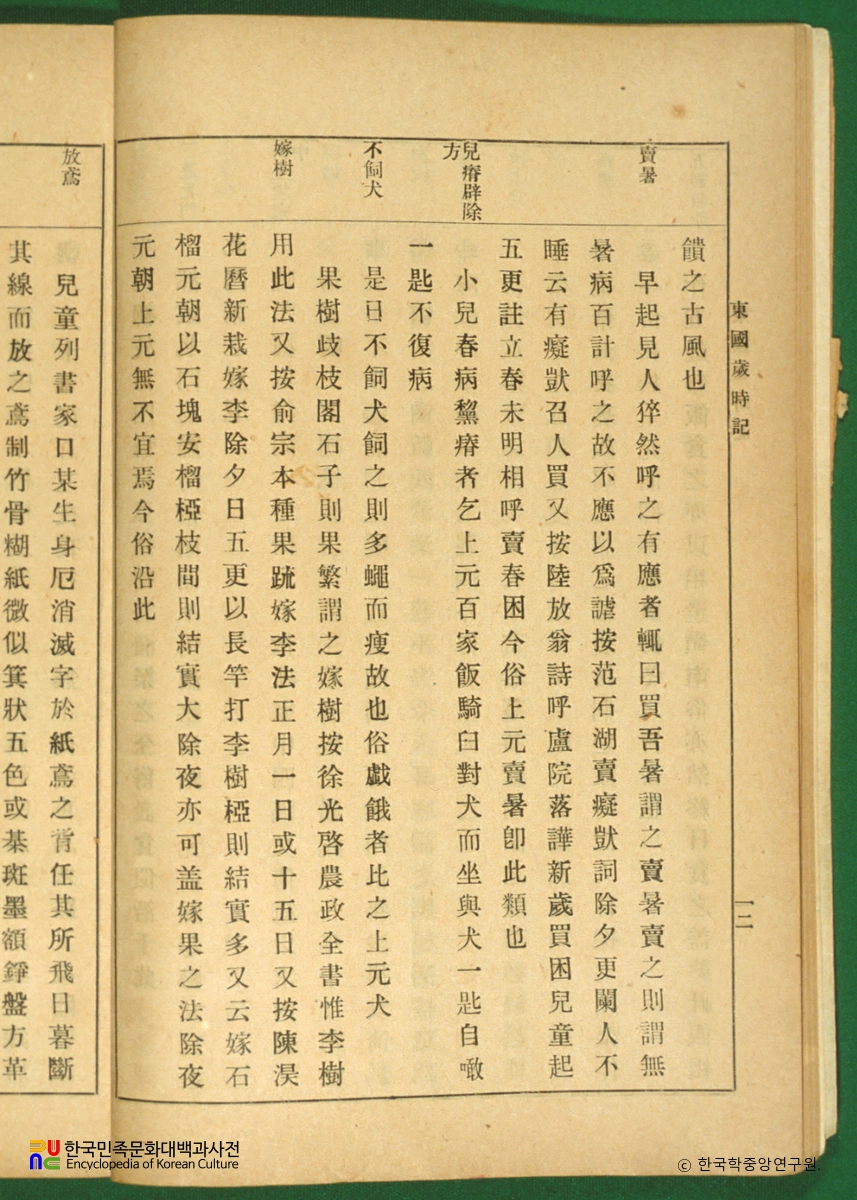 東國歲時記
一二
饋之古風也
賣暑
早起見人猝然呼之有應者輒曰買吾暑謂之賣暑賣之則謂無
暑病百計呼之故不應以爲謔按范石湖賣癡獃詞除夕更闌人不
睡云有癡獃召人買又按陸放翁詩呼盧院落譁新歲買困兒童起
五更註立春未明相呼賣春困今俗上元賣暑卽此類也
兒瘠辟除
方
小兒春病黧瘠者乞上元百家飯騎臼對犬而坐與犬一匙自噉
一匙不復病
不飼犬
是日不飼犬飼之則多蠅而瘦故也俗戲餓者比之上元犬
嫁樹
果樹歧枝閣石子則果繁謂之嫁樹按徐光啓農政全書惟李樹
用此法又按俞宗本種果䟽嫁李法正月一日或十五日又按陳淏
花曆新栽嫁李除夕日五更以長竿打李樹椏則結實多又云嫁石
榴元朝以石塊安榴椏枝間則結實大除夜亦可盖嫁果之法除夜
元朝上元無不宜焉今俗沿此
放鳶
兒童列書家口某生身厄消滅字於紙鳶之背任其所飛日暮斷
其線而放之鳶制竹骨糊紙微似箕狀五色或棊斑墨額錚盤方革
한국민족문화대백과사전
Encyclopedia of Korean Culture
© 한국학중앙연구원.